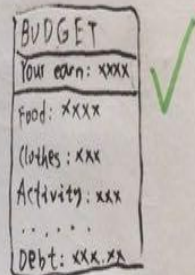 BUDGET
Your earn: xxxx
Food: xxxx
Clothes: xxx
Activity: xxx
......
Debt: xxx.xx